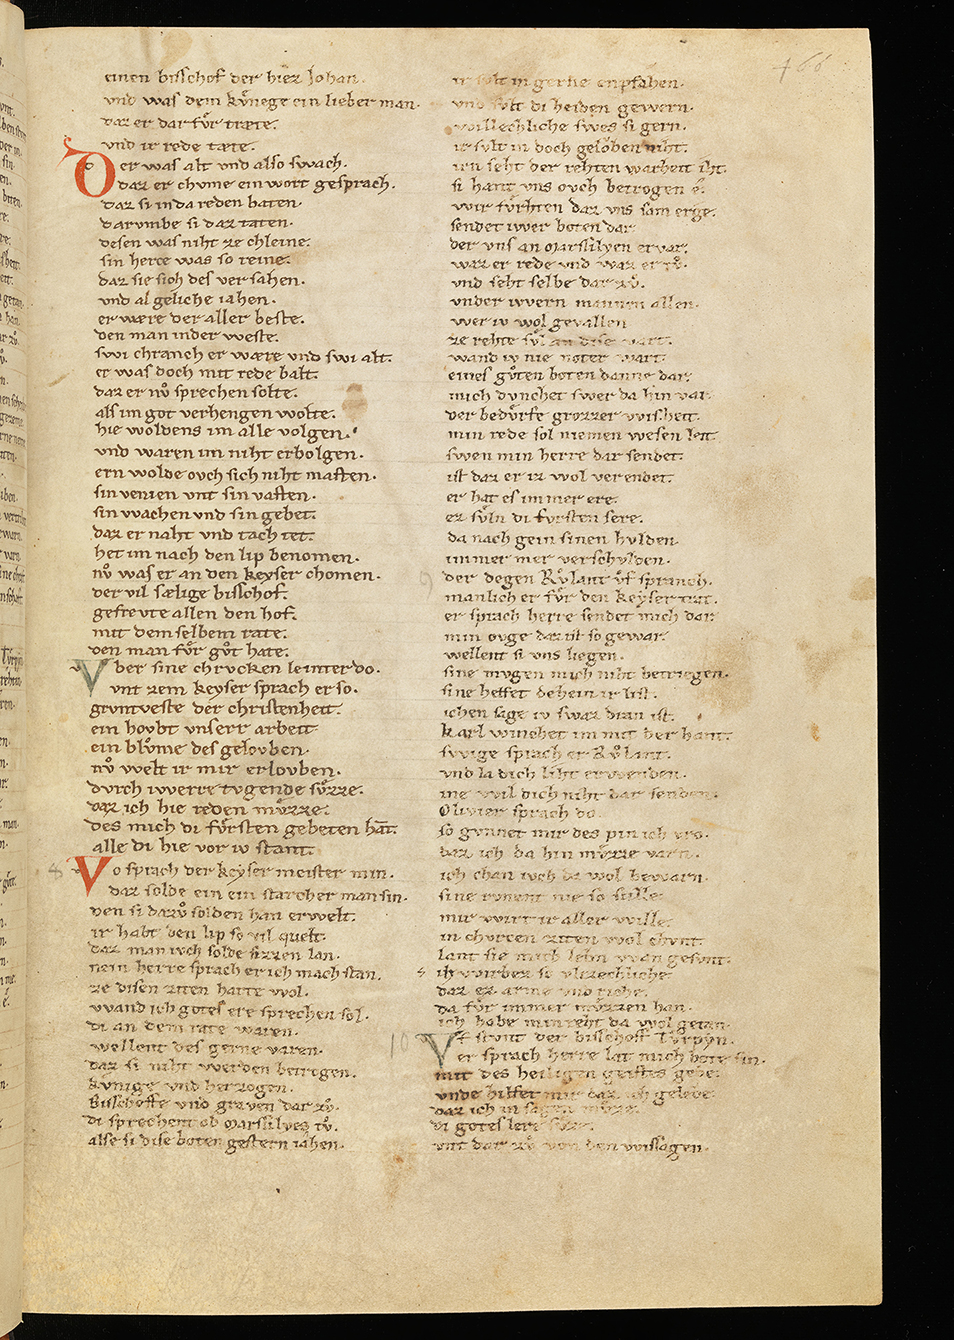 einen bisschof der hiez Johan.
vnd was dem kv̊nege ein lieber man.
daz er dar fv̊r træte.
vnd ir rede tæte.
Der was alt vnd also swach.
daz er chvme ein wort gesprach.
daz si in da reden baten.
darvmbe si daz taten.
desen was niht ze chleine.
sin herce was so reine.
daz sie sich des versahen.
vnd al geliche iahen.
er wære der aller beste.
den man inder weste.
swi chranch er wære vnd swi alt.
er was doch mit rede balt.
daz er nv̊ sprechen solte.
als im got verhengen wolte.
hie woldens im alle volgen.
vnd waren im niht erbolgen.
ern wolde ovch sich niht masten.
sin venien vnt sin vasten.
sin wachen vnd sin gebet.
daz er naht vnd tach tet.
het im nach den lip benomen.
nv̊ was er an den keyser chomen.
der vil sælige bisschof.
gefrevte allen den hof.
mit dem selbem rate.
den man fv̊r gv̊t hate.
Vber sine chrvcken leinter do.
vnt zem keyser sprach er so.
grvntveste der christenheit.
ein hovbt vnserr arbeit.
ein blv̊me des gelovben.
nv̊ welt ir mir erlovben.
dvrch iwerre tvgende sv̊zze.
daz ich hie reden mv̊zze.
des mich di fv̊rsten gebeten hāt.
alle di hie vor iv stant.
Do sprach der keyser meister min.
daz solde ein ein starcher man sin.
den si dazv̊ solden han erwelt.
ir habt den lip so vil quelt.
daz man ivch solde sizzen lan.
nein herre sprach er ich mach stan.
ze disen ziten harte wol.
wand ich gotes ere sprechen sol.
di an dem rate waren.
wellent des gerne varen.
daz si niht werden betrogen.
kv̊nige vnd herzogen.
Bisschoffe vnd graven dar zv̊.
di sprechent ob Marssilyes tv̊.
alse si dise boten gestern iahen.
ir svlt in gerne enpfahen.
vnd svlt di heiden gewern.
willechliche swes si gern.
ir svlt in doch gelo̊ben niht.
irn seht der rehten warheit iht.
si hant vns ovch betrogen e.
wir fv̊rhten daz vns sam erge.
sendet iwer boten dar.
der vns an Marssilyen ervar.
waz er rede vnd waz er tv̊.
vnd seht selbe dar zv̊.
vnder iwern mannen allen.
wer iv wol gevallen
ze rehte sv̊l an dise vart.
wand iv nie noter wart.
eines gv̊ten boten danne dar.
mich dvnchet swer da hin var.
der bedv̊rfe grozzer wisheit.
min rede sol niemen wesen leit.
swen min herre dar sendet.
ist daz er iz wol verendet.
er hat es immer ere.
ez sv̊ln di fvrsten sere.
da nach gein sinen hvlden.
immer mer verschvlden.
der degen Rv̊lant v̊f spranch.
manlich er fv̊r den keyser trat.
er sprach herre sendet mich dar.
min ovge daz ist so gewar.
wellent si vns liegen.
sine mvgen mich niht betriegen.
sine helfet dehein ir list.
ichen sage iv swaz dran ist.
Karl winchet im mit der hant.
swige sprach er Rv̊lant.
vnd la dich liht erwenden.
ine wil dich niht dar senden.
Olivier sprach do.
so gvnnet mir des pin ich vro.
daz ich da hin mv̊zze varn.
ich chan ivch da wol bewarn.
sine chvment nie so stille
mir wirt ir aller wille.
in chvrcen ziten wol chvnt.
lant sie mich lebn wan gesvnt.
ih wirbez so vlizechliche.
daz ez arme vnd riche.
da fv̊r immer mv̊zzen han.
ich habe min reht da wol getan.
Vf stvnt der bisschoff Tvrpyn.
er sprach herre lat mich bote sin.
mit des heiligen geistes gebe.
vnde hilfet mir daz ich gelebe
daz ich in sagen mv̊ze
di gotes lere sv̊ze.
vnt dar zv̊ von den wissagen.